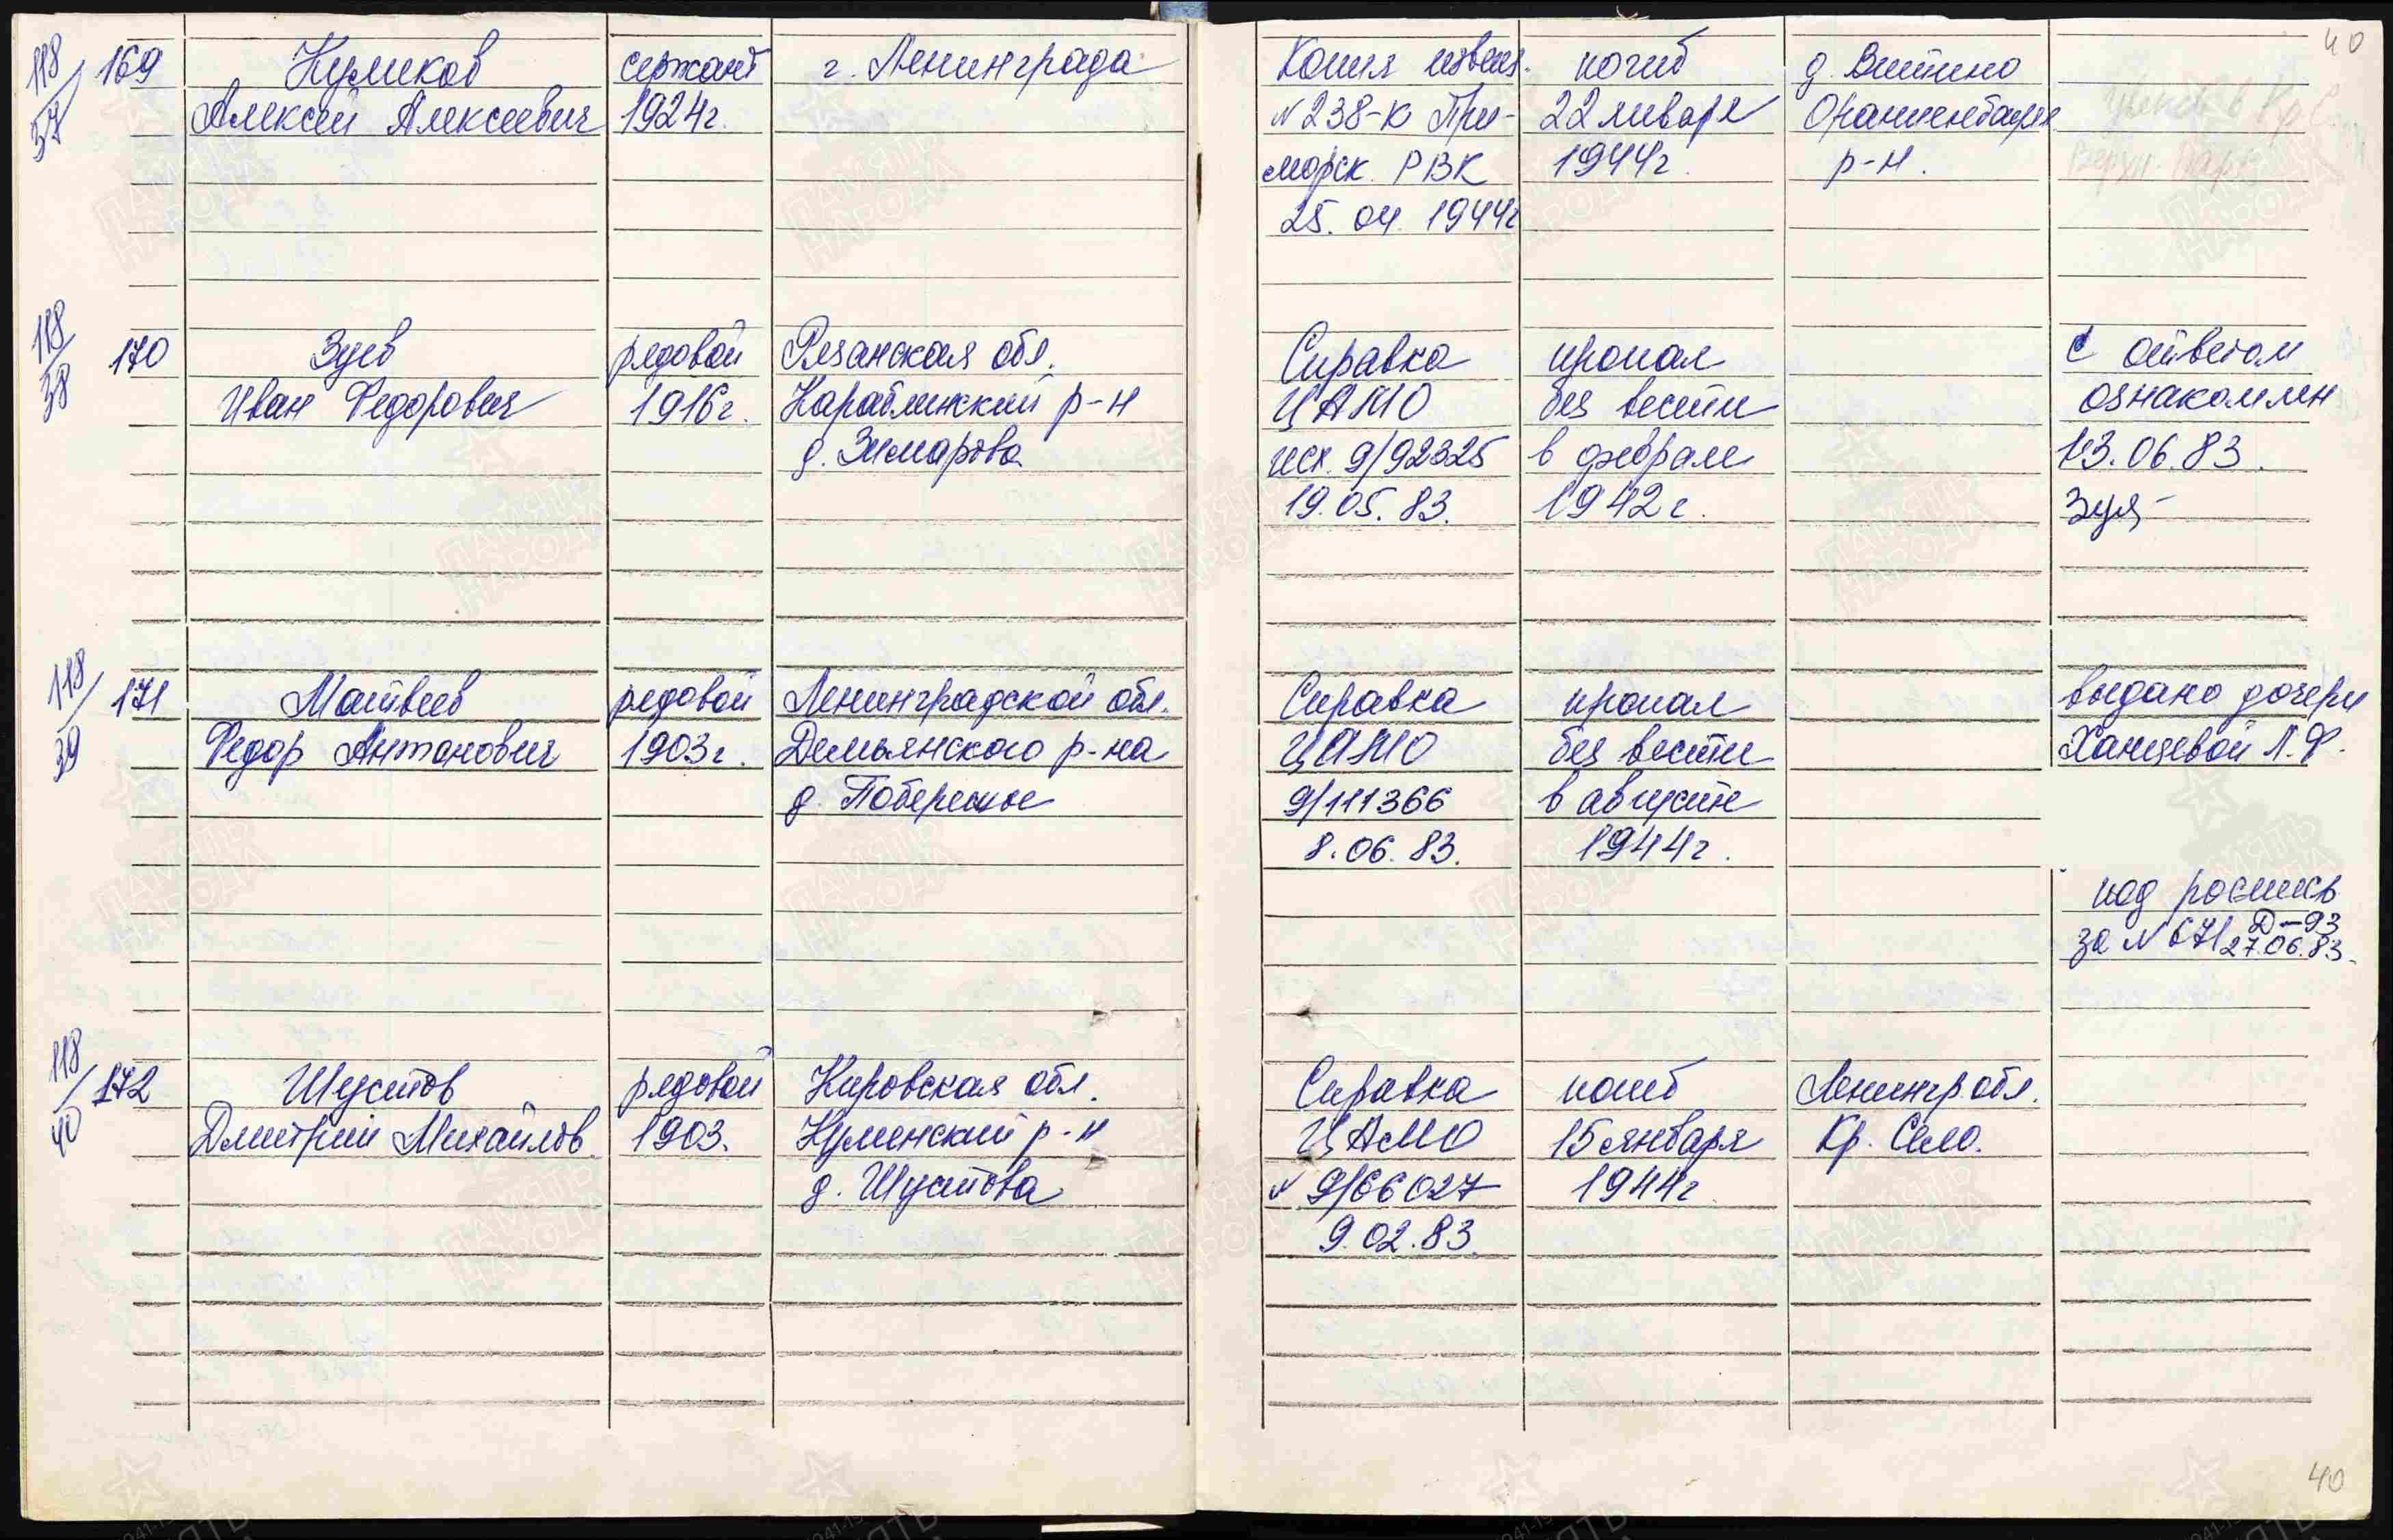 40
118/37 169 Куликов сержант г. Ленинграда Копия извещ. погиб д. Витино
Алексей Алексеевич 1924г. N 238-к При- 22 января Ораниенбаумск
морск. РВК 1944г. р-н.
25. 04. 1944г
118/38 170 Зуев рядовой Рязанская обл. Справка пропал С ответом
Иван Федорович 1916г. Кораблинский р-н ЦАМО без вести ознакомлен
д. Зимарова исх. 9/92325 в феврале 13.06.83.
19.05.83. 1942г.
118/39 171 Матвеев рядовой Ленинградской обл. Справка пропал выдано дочери
Федор Антонович 1903г. Демьянского р-на ЦАМО без вести Ханцевой Л.Ф.
д. Побережье 9/111366 в августе
8.06.83. 1944г.
под роспись
за N 671 Д-93
27.06.83.
118/40 172 Шустов рядовой Кировская обл. Справка погиб Ленингр. обл.
Дмитрий Михайлов. 1903. Куменский р-н ЦАМО 15 января Кр. Село.
д. Шустова 9/66027 1944г.
9.02.83.
40